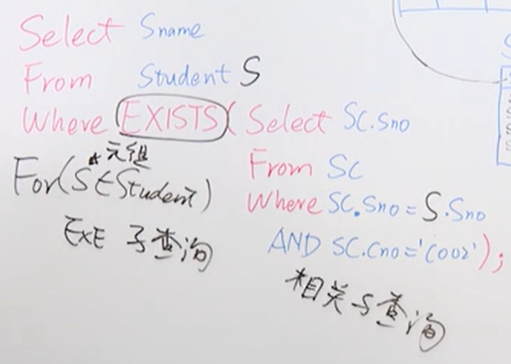 Select Sname
From Student S
Where EXISTS( Select SC.Sno
From SC
Where SC.Sno=S.Sno
AND SC.Cno='C002');
元组
For(S∈Student)
EXE 子查询
相关子查询